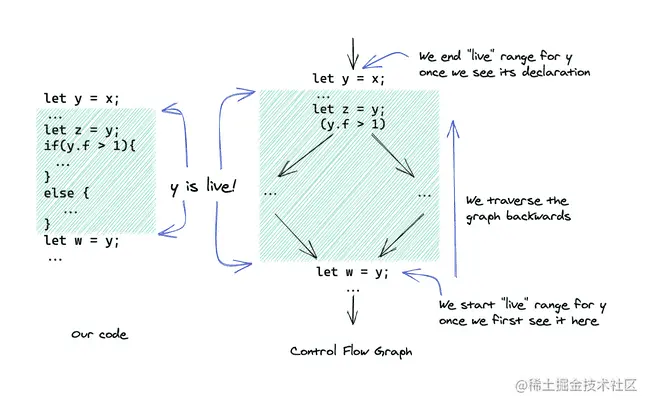 let y = x;
...
let z = y;
if(y.f > 1){
...
}
else {
...
}
let w = y;
...
Our code
y is live!
let y = x;
...
let z = y;
(y.f > 1)
...
...
let w = y;
...
Control Flow Graph
We end "live" range for y
once we see its declaration
We traverse the
graph backwards
We start "live" range for y
once we first see it here
@稀土掘金技术社区